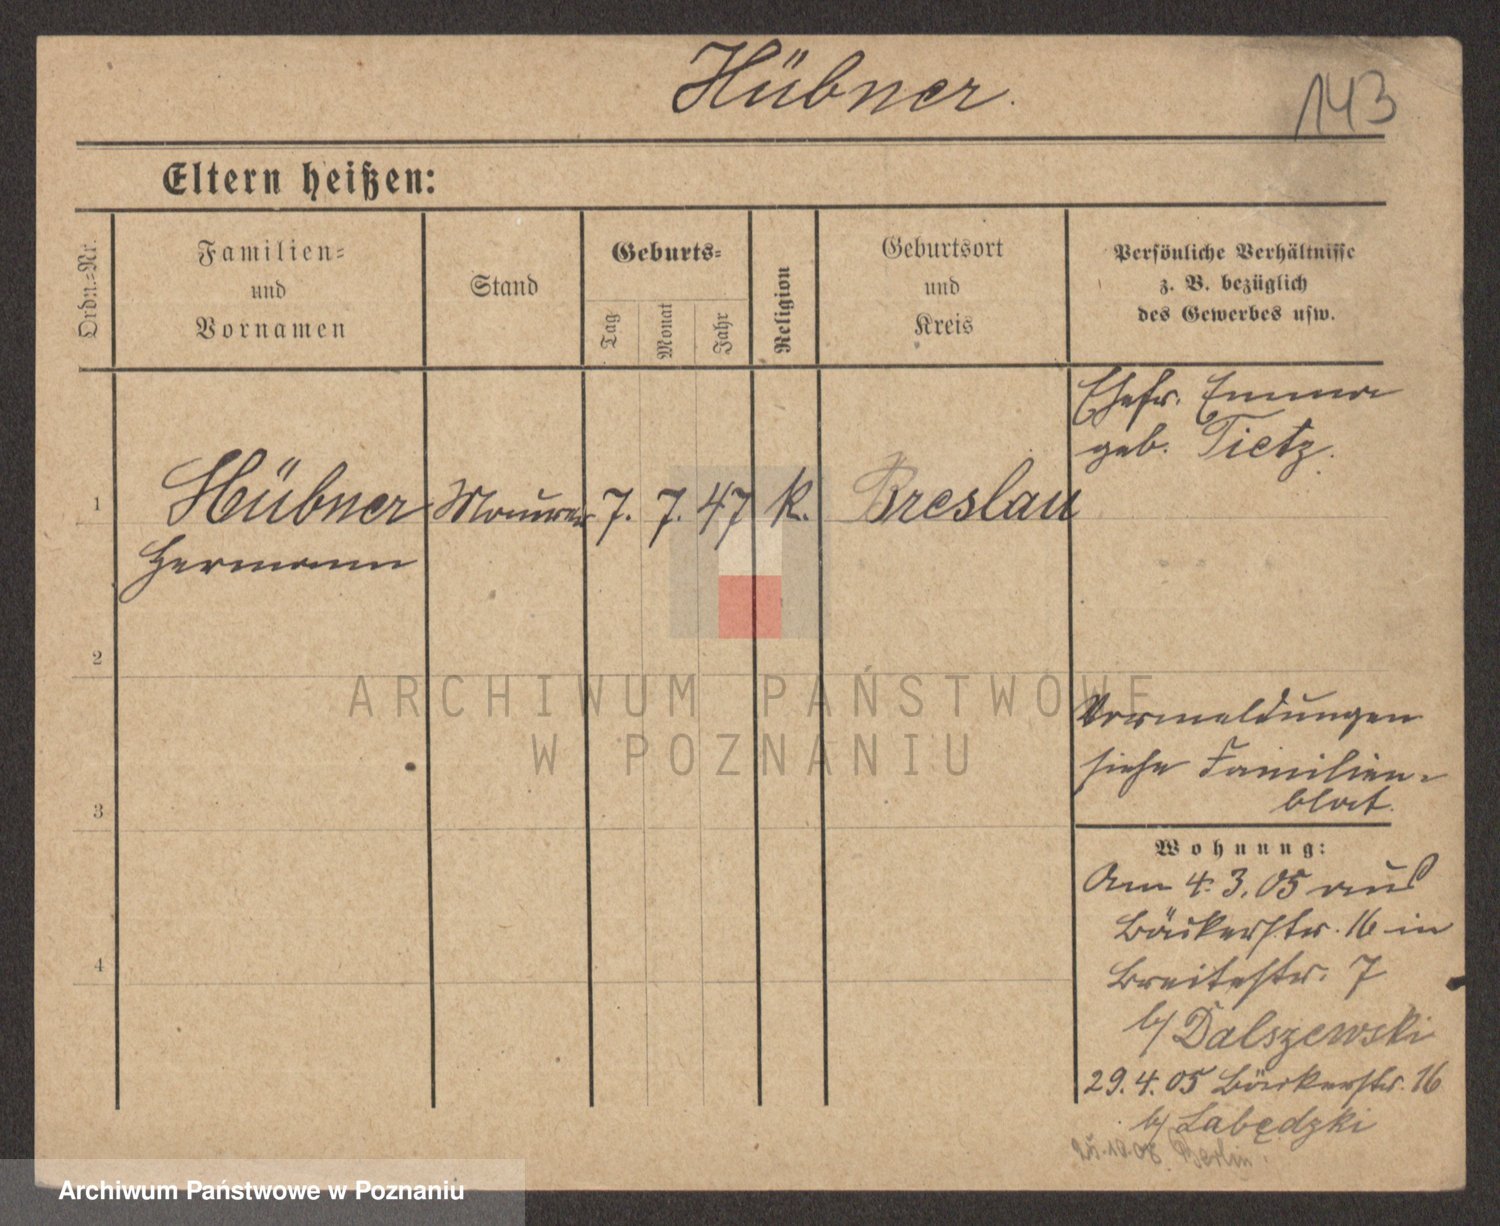 Hübner.
143
Eltern heißen:
Ordn.-Nr.
Familien-
und
Vornamen
Stand
Geburts-
Tag
Monat
Jahr
Religion
Geburtsort
und
Kreis
Persönliche Verhältnisse
z. B. bezüglich
des Gewerbes usw.
Ehefr. Emma
geb. Tietz.
1 Hübner Maurer 7. 7. 47 k. Breslau
Hermann
2
ARCHIWUM PAŃSTWOWE
W POZNANIU
Vormeldungen
siehe Familien-
blat.
3
Wohnung:
Am 4.3.05 aus
Bäckerstr. 16 in
4
Breitestr. 7
b/ Dalszewski
29.4.05 Bäckerstr. 16
b/ Labędzki
25.10.08 Berlin.
Archiwum Państwowe w Poznaniu